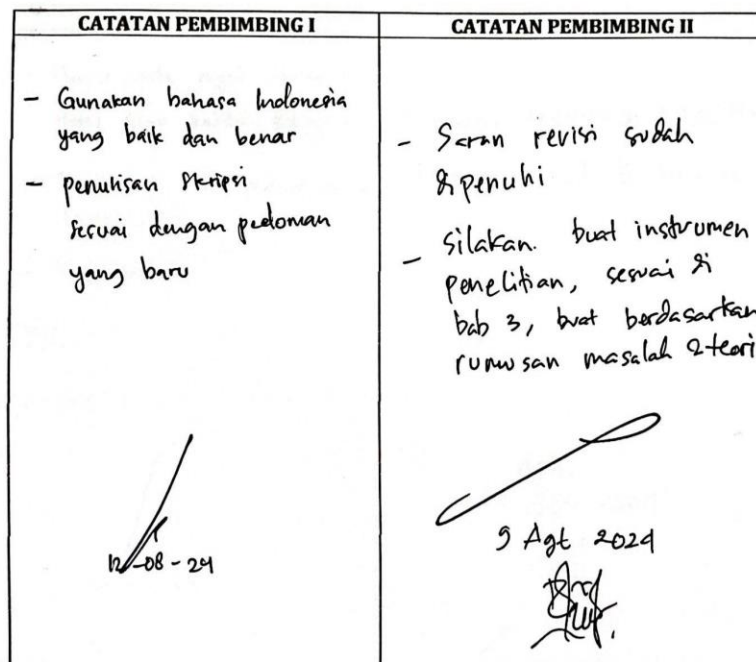 CATATAN PEMBIMBING I
- Gunakan bahasa Indonesia
yang baik dan benar
- penulisan skripsi
sesuai dengan pedoman
yang baru
12-08-24
CATATAN PEMBIMBING II
- Saran revisi sudah
dipenuhi
- silakan. buat instrumen
penelitian, sesuai di
bab 3, buat berdasarkan
rumusan masalah & teori
9 Agt 2024